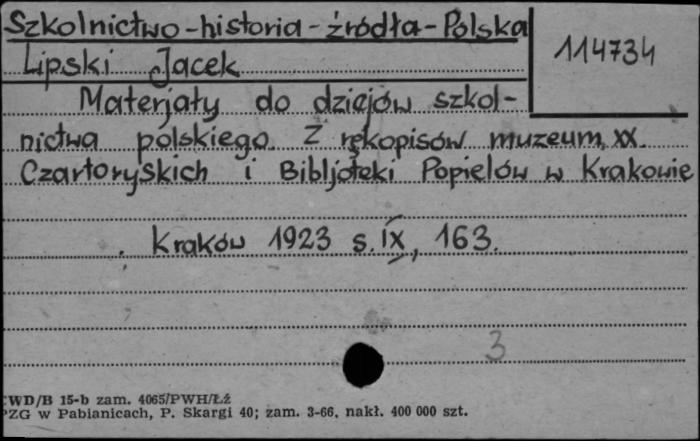 Szkolnictwo-historia-źródła-Polska
114734
Lipski Jacek
Materjały do dziejów szkol-
nictwa polskiego. Z rękopisów muzeum XX.
Czartoryskich i Bibljoteki Popielów w Krakowie
Kraków 1923 s. IX, 163.
3
WD/B 15-b zam. 4065/PWH/Łź
PZG w Pabianicach, P. Skargi 40; zam. 3-66, nakł. 400 000 szt.